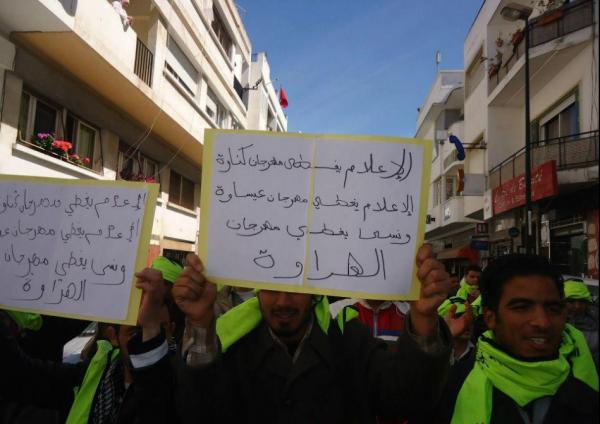 الإعلام يغطي مهرجان كناوة
الاعلام يغطي مهرجان عيساوة
ونسى يغطي مهرجان
الهراوة
الإعلام يغطي مهرجان
الإعلام يغطي مهرجان
ونسى يغطي مهرجان
الهراوة